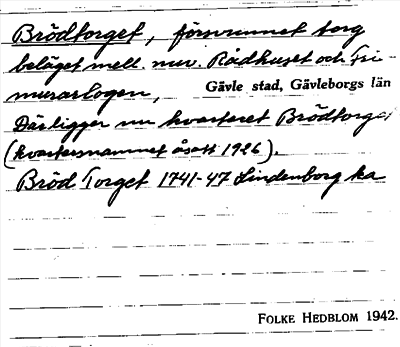 Brödtorget, försvunnet torg
beläget mell. nuv. Rådhuset och Fri-
murarlogen,
Gävle stad, Gävleborgs län
Där ligger nu kvarteret Brödtorget
(kvartersnamnet åsatt 1926).
Bröd Torget 1741-47 Lindenborg ka
FOLKE HEDBLOM 1942.